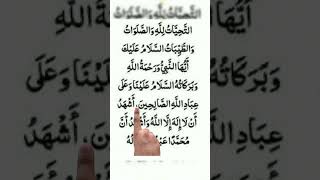 التَّحِيَّاتُ لِلَّهِ وَالصَّلَوَاتُ
التَّحِيَّاتُ لِلَّهِ وَالصَّلَوَاتُ
وَالطَّيِّبَاتُ السَّلَامُ عَلَيْكَ
أَيُّهَا النَّبِيُّ وَرَحْمَةُ اللَّهِ
وَبَرَكَاتُهُ السَّلَامُ عَلَيْنَا وَعَلَى
عِبَادِ اللَّهِ الصَّالِحِينَ، أَشْهَدُ
أَنْ لَا إِلَهَ إِلَّا اللَّهُ وَأَشْهَدُ أَنَّ
مُحَمَّدًا